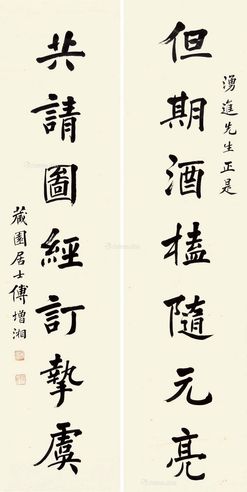 湧進先生正是
但期酒榼隨元亮
共請圖經訂摯虞
藏園居士傅增湘